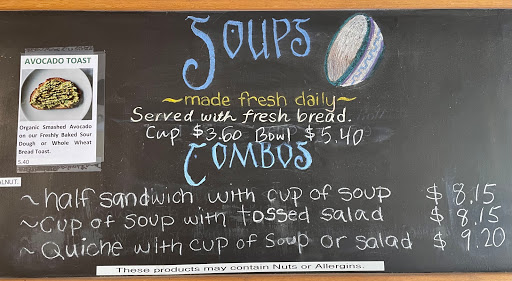 Soups
AVOCADO TOAST
Organic Smashed Avocado
on our Freshly Baked Sour
Dough or Whole Wheat
Bread Toast.
5.40
~made fresh daily~
Served with fresh bread.
Cup $3.60 Bowl $5.40
COMBOS
ALNUT.
~half sandwich with cup of soup $8.15
~cup of soup with tossed salad $8.15
~Quiche with cup of soup or salad $9.20
These products may contain Nuts or Allergins.